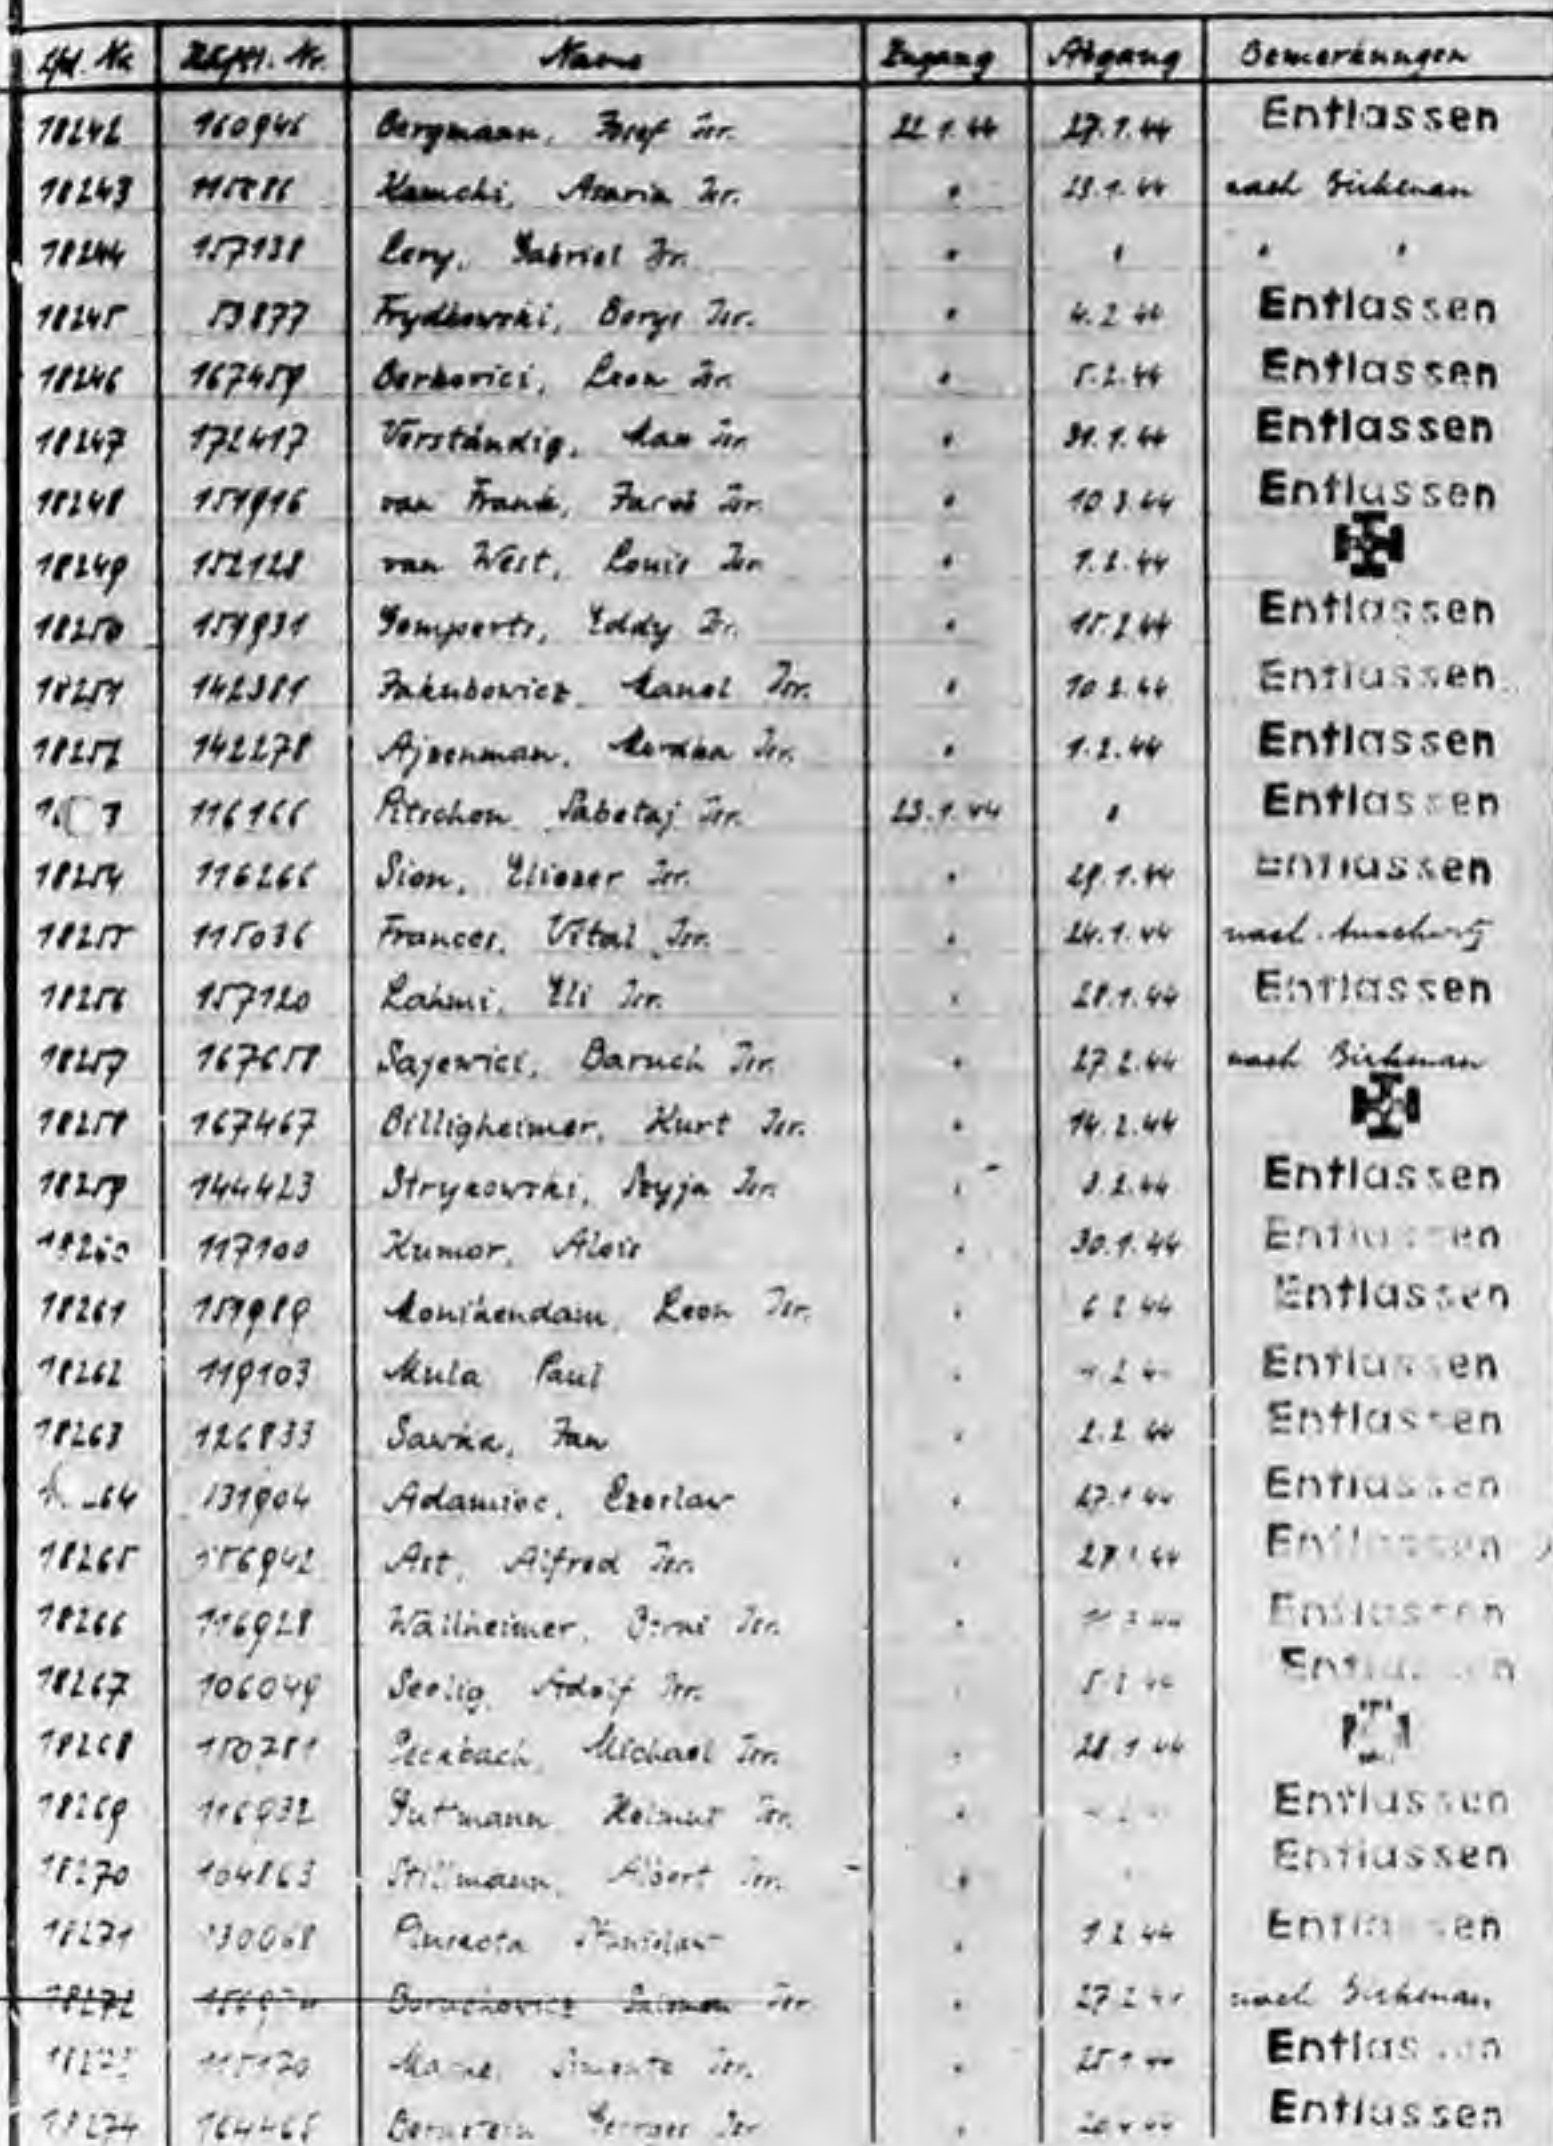 Lfd. Nr. Häftl. Nr. Name Zugang Abgang Bemerkungen
18242 160946 Bergmann, Josef Isr. 22.1.44 27.1.44 Entlassen
18243 Kamchi, Asaria Isr. " 23.1.44 nach Birkenau
18244 157138 Levy, Gabriel Isr. " " " "
18245 53877 Frydkowski, Borys Isr. " 4.2.44 Entlassen
18246 167459 Berkovici, Leon Isr. " 5.2.44 Entlassen
18247 172417 Verständig, Max Isr. " 31.1.44 Entlassen
18248 151916 van Frank, Jacob Isr. " 10.3.44 Entlassen
18249 152128 van West, Louis Isr. " 1.2.44
18250 151931 Gomperts, Eddy Isr. " 15.2.44 Entlassen
18251 142381 Jakubowicz, Manel Isr. " 10.2.44 Entlassen
18252 142278 Ajzenman, Mordka Isr. " 1.2.44 Entlassen
116166 Pitschon Sabetaj Isr. 23.1.44 " Entlassen
18254 116266 Sion, Eliezer Isr. " 29.1.44 Entlassen
18255 115036 Frances, Vital Isr. " 24.1.44 nach Auschwitz
18256 157120 Lahmi, Eli Isr. " 28.1.44 Entlassen
18257 167658 Sajevici, Baruch Isr. " 27.2.44 nach Birkenau
18258 167467 Billigheimer, Kurt Isr. " 14.2.44
18259 144423 Strykowski, Szyja Isr. " Entlassen
18260 117100 Kumor, Alois " 30.1.44 Entlassen
18261 151989 Monikendam, Leon Isr. " 6.2.44 Entlassen
18262 119103 Mula Paul " Entlassen
18263 126833 Sawka, Jan " 2.2.44 Entlassen
131904 Adamiec, Czeslaw " 27.1.44 Entlassen
18265 156942 Ast, Alfred Isr. " 27.1.44 Entlassen
18266 116928 Wallheimer, Berni Isr. " Entlassen
18267 106049 Seelig, Adolf Isr. " 5.2.44 Entlassen
18268 150781 Michael Isr. " 28.1.44
18269 116932 Guttmann Helmut Isr. " Entlassen
18270 104863 Stillmann, Albert Isr. " Entlassen
18271 130068 Stanislaw " 1.2.44 Entlassen
18272 Boruchovicz Salomon Isr. " 27.2.44 nach Birkenau
115170 Isr. " 25.1.44 Entlassen
18274 164465 Bernstein Isr. " Entlassen